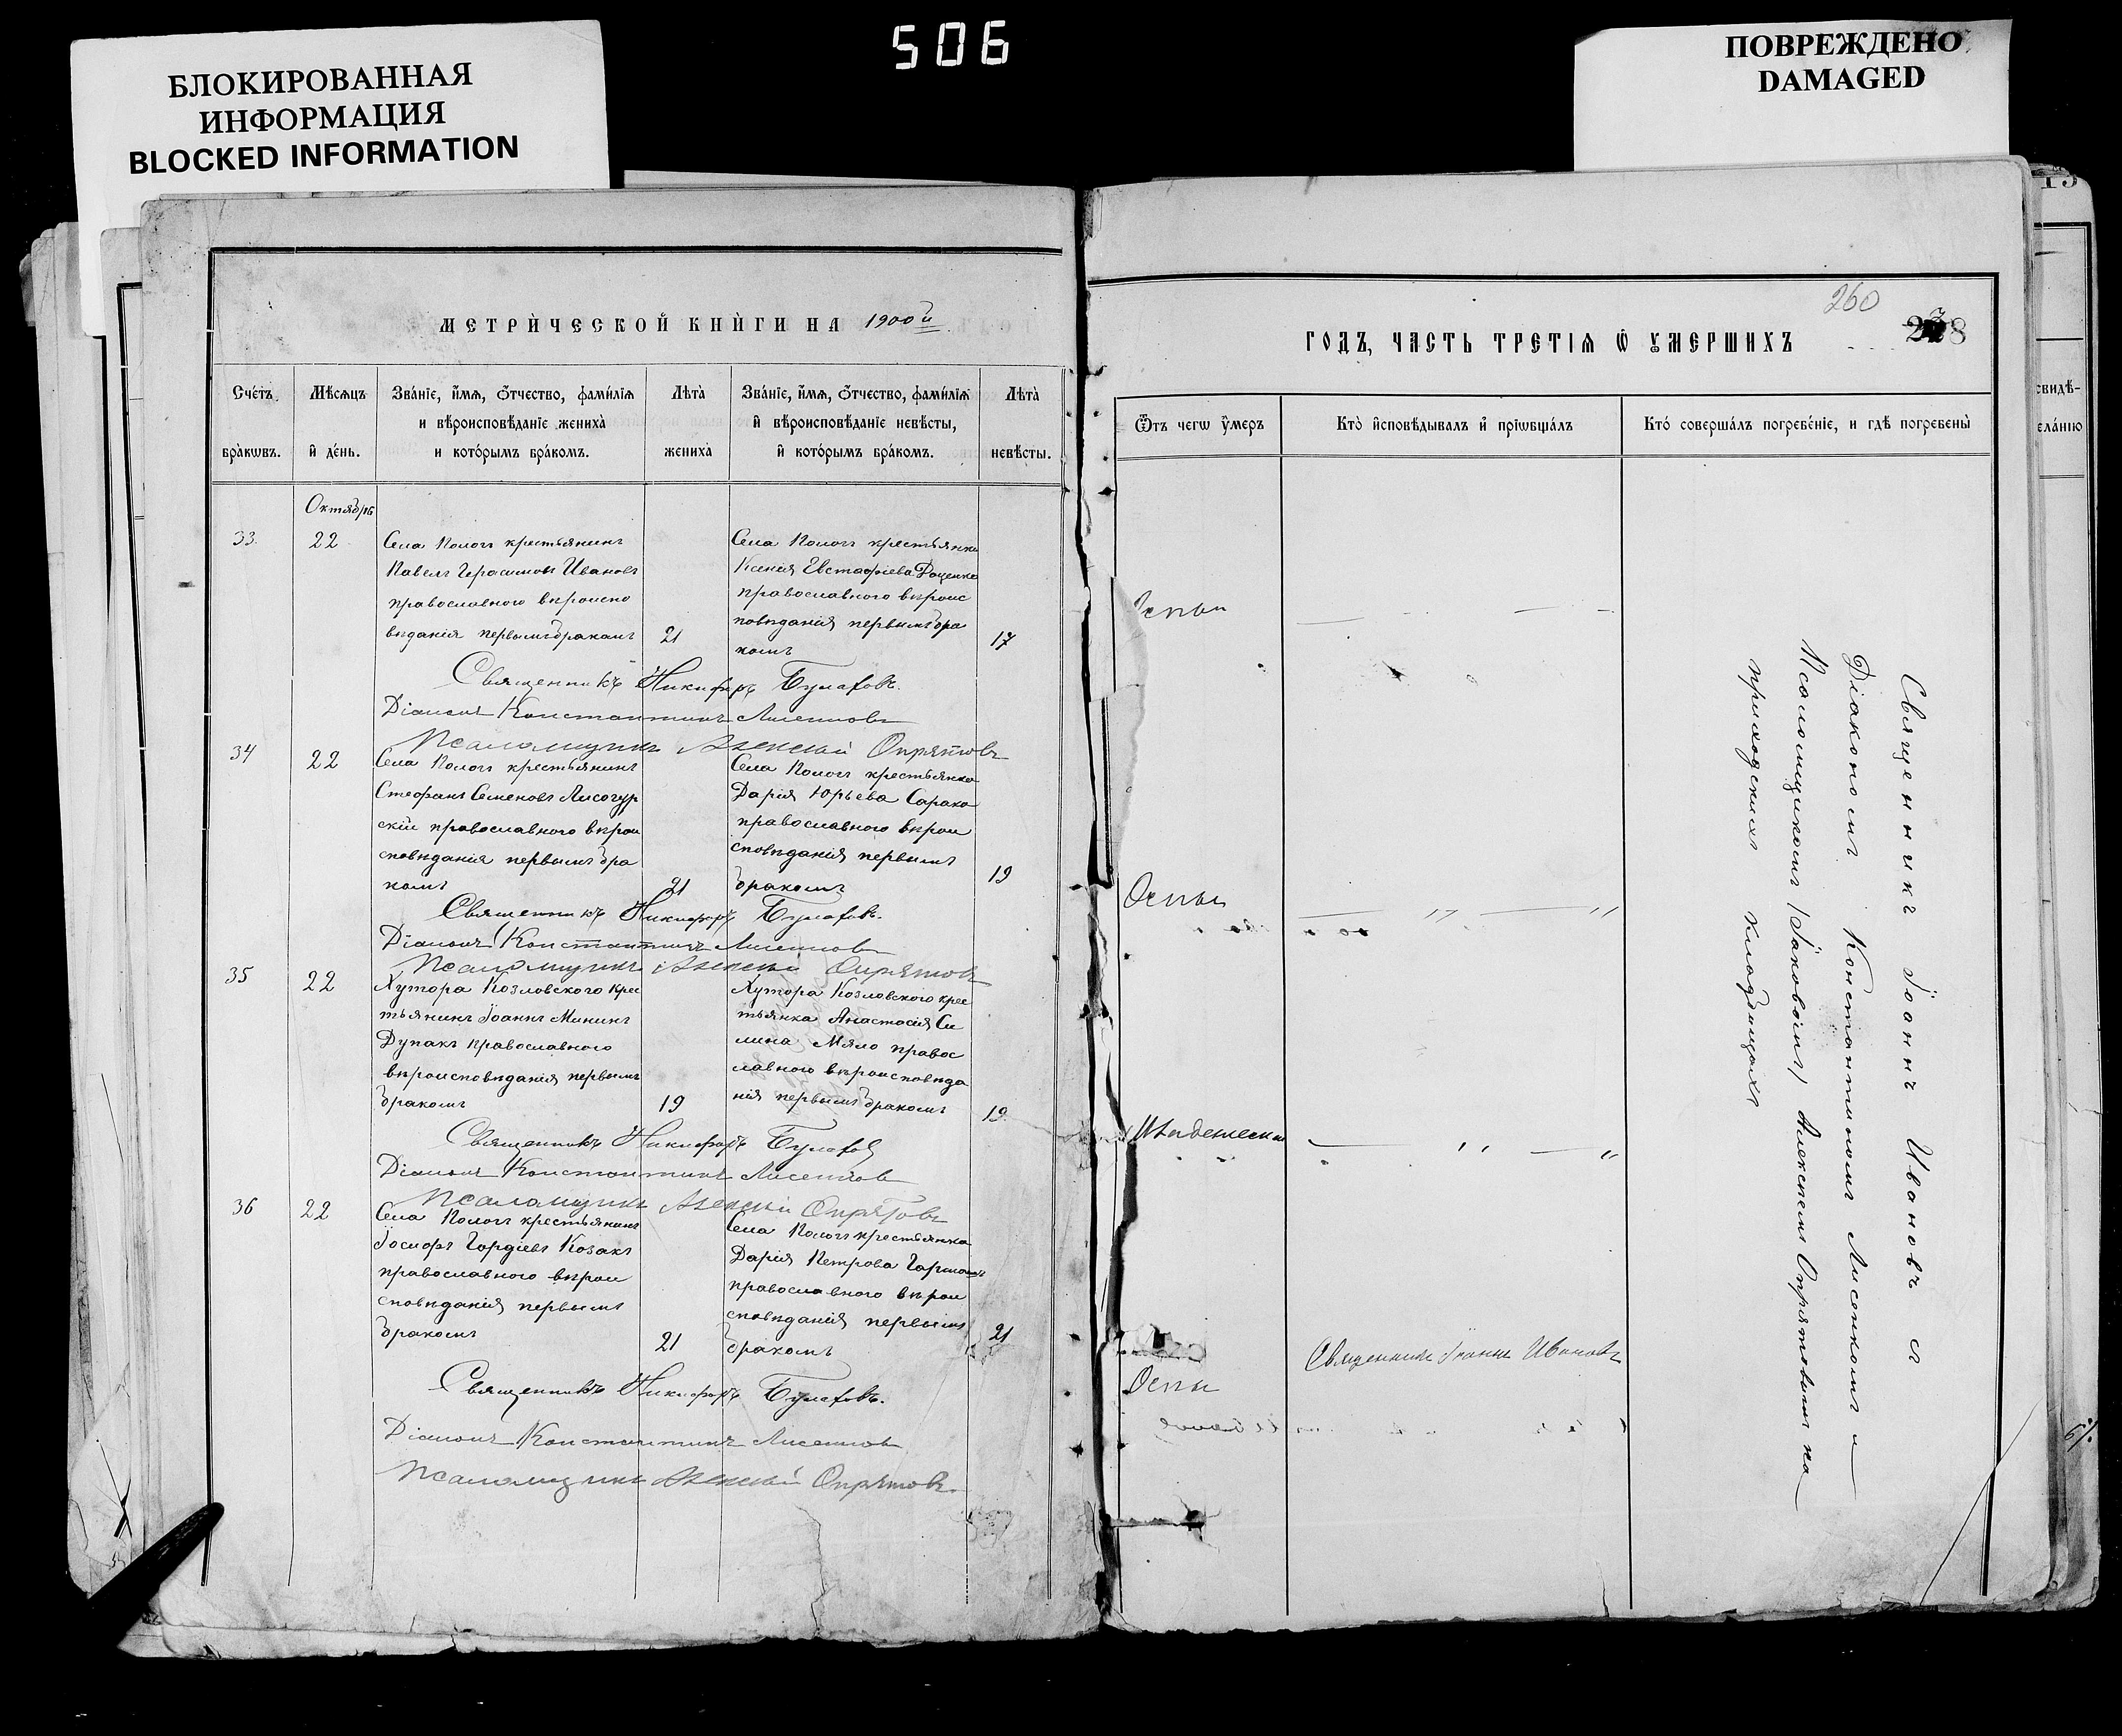 БЛОКИРОВАННАЯ
ИНФОРМАЦИЯ
BLOCKED INFORMATION
506
ПОВРЕЖДЕНО
DAMAGED
МЕТРИ́ЧЕСКОЙ КНИ́ГИ НА 1900й
Сче́тъ бра́кωвъ.
Мѣ́сѧцъ и҆ де́нь.
Зва́нїе, и҆́мѧ, ѻ҆́тчество, фами́лїѧ
и вѣроисповѣ́данїе жениха̀
и кото́рымъ бра́комъ.
Лѣта̀ жениха̀
Зва́нїе, и҆́мѧ, ѻ҆́тчество, фами́лїѧ
и҆ вѣроисповѣ́данїе невѣ́сты,
и҆ кото́рымъ бра́комъ.
Лѣта̀ невѣ́сты.
Октябрь
33.
22
Села Пологъ крестьянинъ
Павелъ Герасимовъ Ивановъ
православнаго вѣроиспо
вѣданія первымъ бракомъ
21
Села Пологъ крестьянка
Ксенія Евстафіева Доценко
православнаго вѣроис
повѣданія первымъ бра
комъ
17
Священникъ Никифоръ Булатовъ.
Діаконъ Константинъ Лисенковъ
Псаломщикъ Алексѣй Опрятовъ
34
22
Села Пологъ крестьянинъ
Стефанъ Семеновъ Лисогур
скій православнаго вѣрои
сповѣданія первымъ бра
комъ
21
Села Пологъ крестьянка
Дарія Юрьева Сарака
православнаго вѣрои
сповѣданія первымъ
бракомъ
19
Священникъ Никифоръ Булатовъ.
Діаконъ Константинъ Лисенковъ
Псаломщикъ Алексѣй Опрятовъ
35
22
Хутора Козловского крес
тьянинъ Іоаннъ Мининъ
Дупакъ православнаго
вѣроисповѣданія первымъ
бракомъ
19
Хутора Козловского крес
тьянка Анастасія Си
лина Мяло правос
лавнаго вѣроисповѣда
нія первымъ бракомъ
19
Священникъ Никифоръ Булатовъ
Діаконъ Константинъ Лисенковъ
Псаломщикъ Алексѣй Опрятовъ
36
22
Села Пологъ крестьянинъ
Іосифъ Гордіевъ Козакъ
православнаго вѣрои
сповѣданія первымъ
бракомъ
21
Села Пологъ крестьянка
Дарія Петрова
православнаго вѣрои
сповѣданія первымъ
бракомъ
21
Священникъ Никифоръ Булатовъ.
Діаконъ Константинъ Лисенковъ
Псаломщикъ Алексѣй Опрятовъ.
260
ГОДЪ, ЧАСТЬ ТРЕТЇѦ Ѡ҆ ᲂУ҆МЕРШИХЪ
Ѿ чегѡ ᲂу҆́меръ
Кто̀ и҆сповѣ́дывалъ и҆ прїѡбща́лъ
Кто́ соверша́лъ погребе́нїе, и гдѣ̀ погребены̀
Оспы
Оспы
Оспы
Священникъ Іоаннъ Ивановъ
Священникъ Іоаннъ Ивановъ съ
Діакономъ Константиномъ Лисенкомъ и
Псаломщикомъ Алексѣемъ Опрятовымъ на
приходскихъ кладбищахъ
свидѣ-
ела́нїю